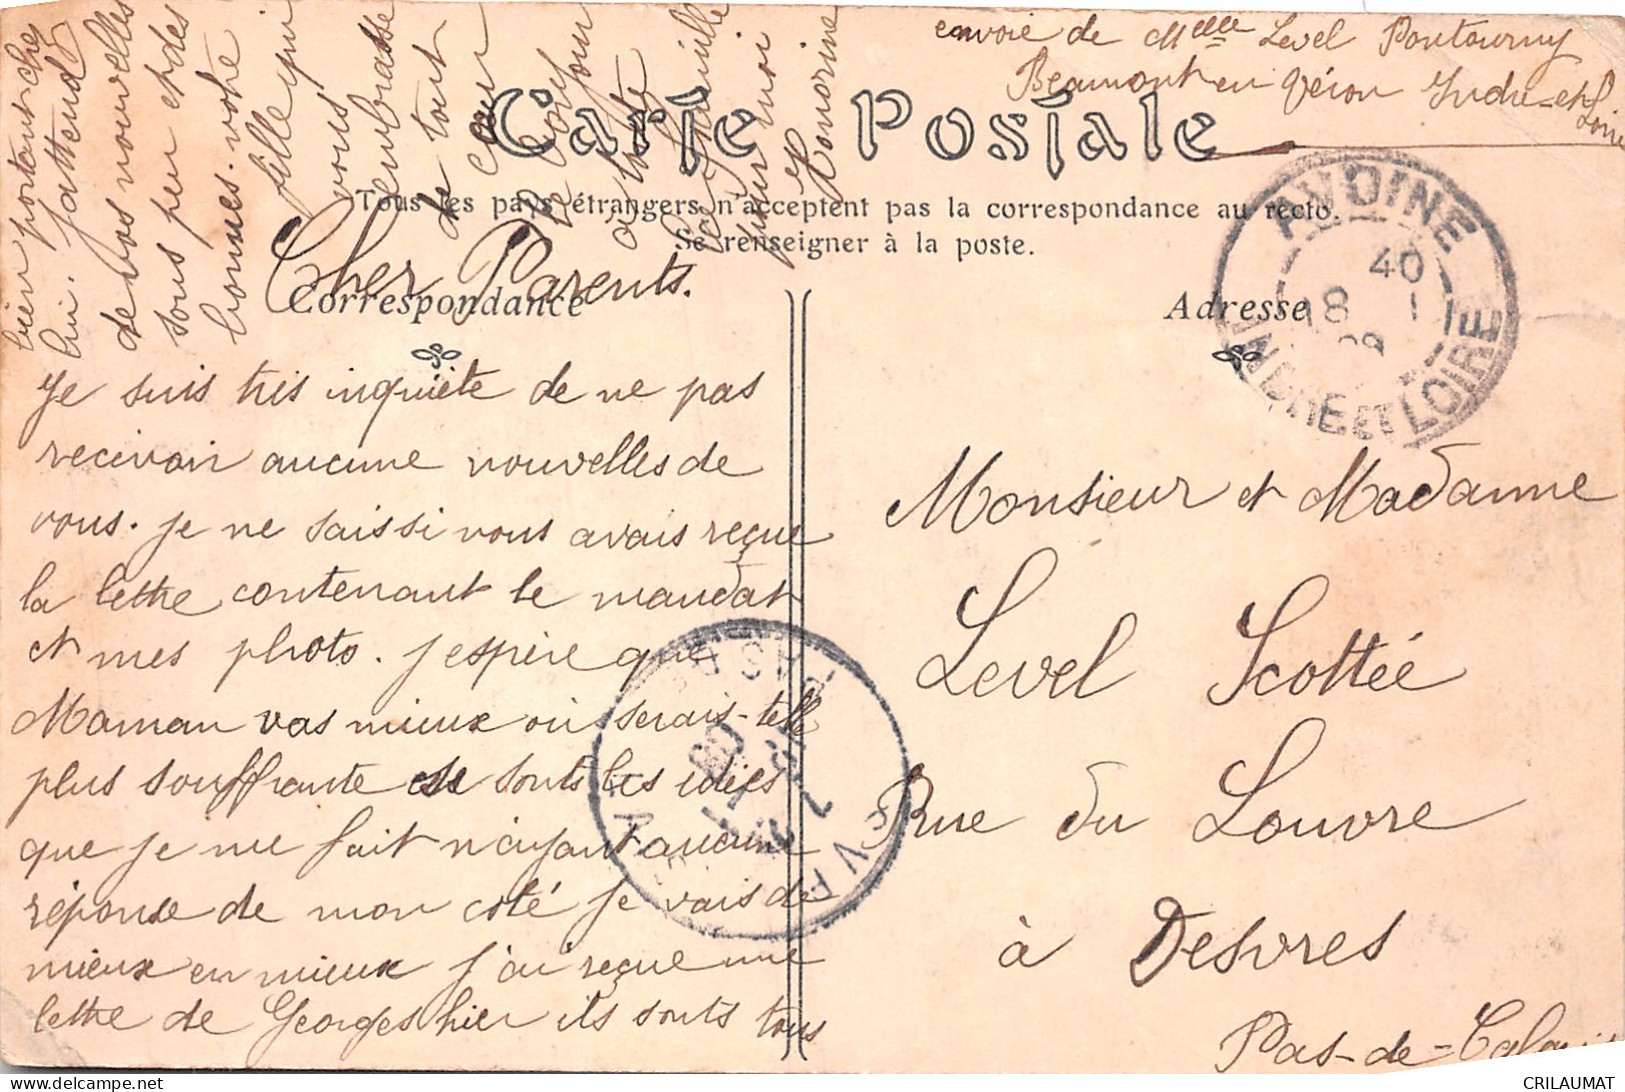 envoie de Melle Level Pontourny
Beaumont en Véron Indre-et-Loire
Carte Postale
Tous les pays étrangers n'acceptent pas la correspondance au recto.
Se renseigner à la poste.
Correspondance
Adresse
AVOINE
40
18 1
09
INDRE ET LOIRE
Cher Parents.
Je suis très inquiète de ne pas
recevoir aucune nouvelles de
vous. je ne sais si vous avais reçue
la lettre contenant le mandat
et mes photo. j'espère que
Maman vas mieux ou serais-telle
plus souffrante se sonts les idées
que je me fait n'ayant aucune
réponse de mon coté je vais de
mieux en mieux j'ai reçue une
lettre de Georges hier ils sonts tous
bien portant chez
lui. j'attend
de vos nouvelles
sous peu et des
bonnes. votre
fille qui
vous
embrasse
de tout
cœur
le bonjour
a toute
la famille
pour moi
Honorine
Monsieur et Madame
Level Scottée
Rue du Louvre
à Desvres
Pas-de-Calais
CRILAUMAT